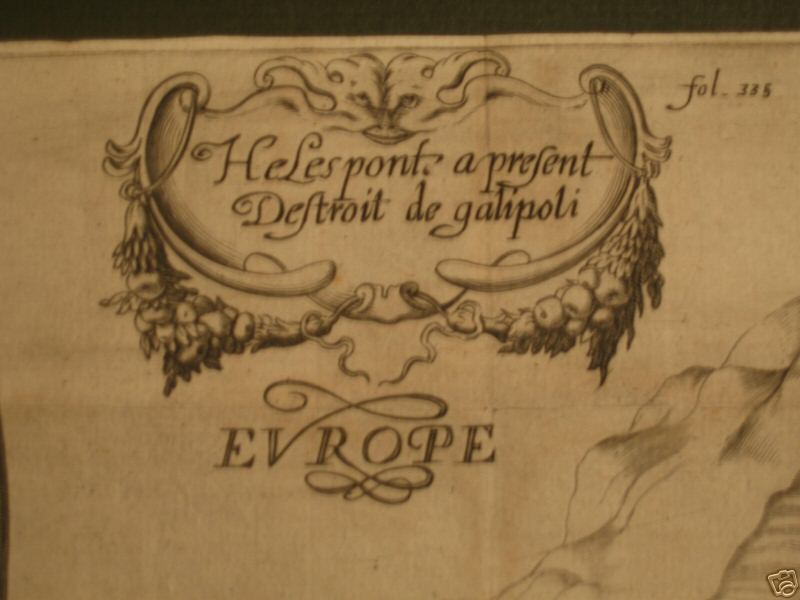 fol. 335
HeLespont, a preſent
Deſtroit de galipoli
EVROPE